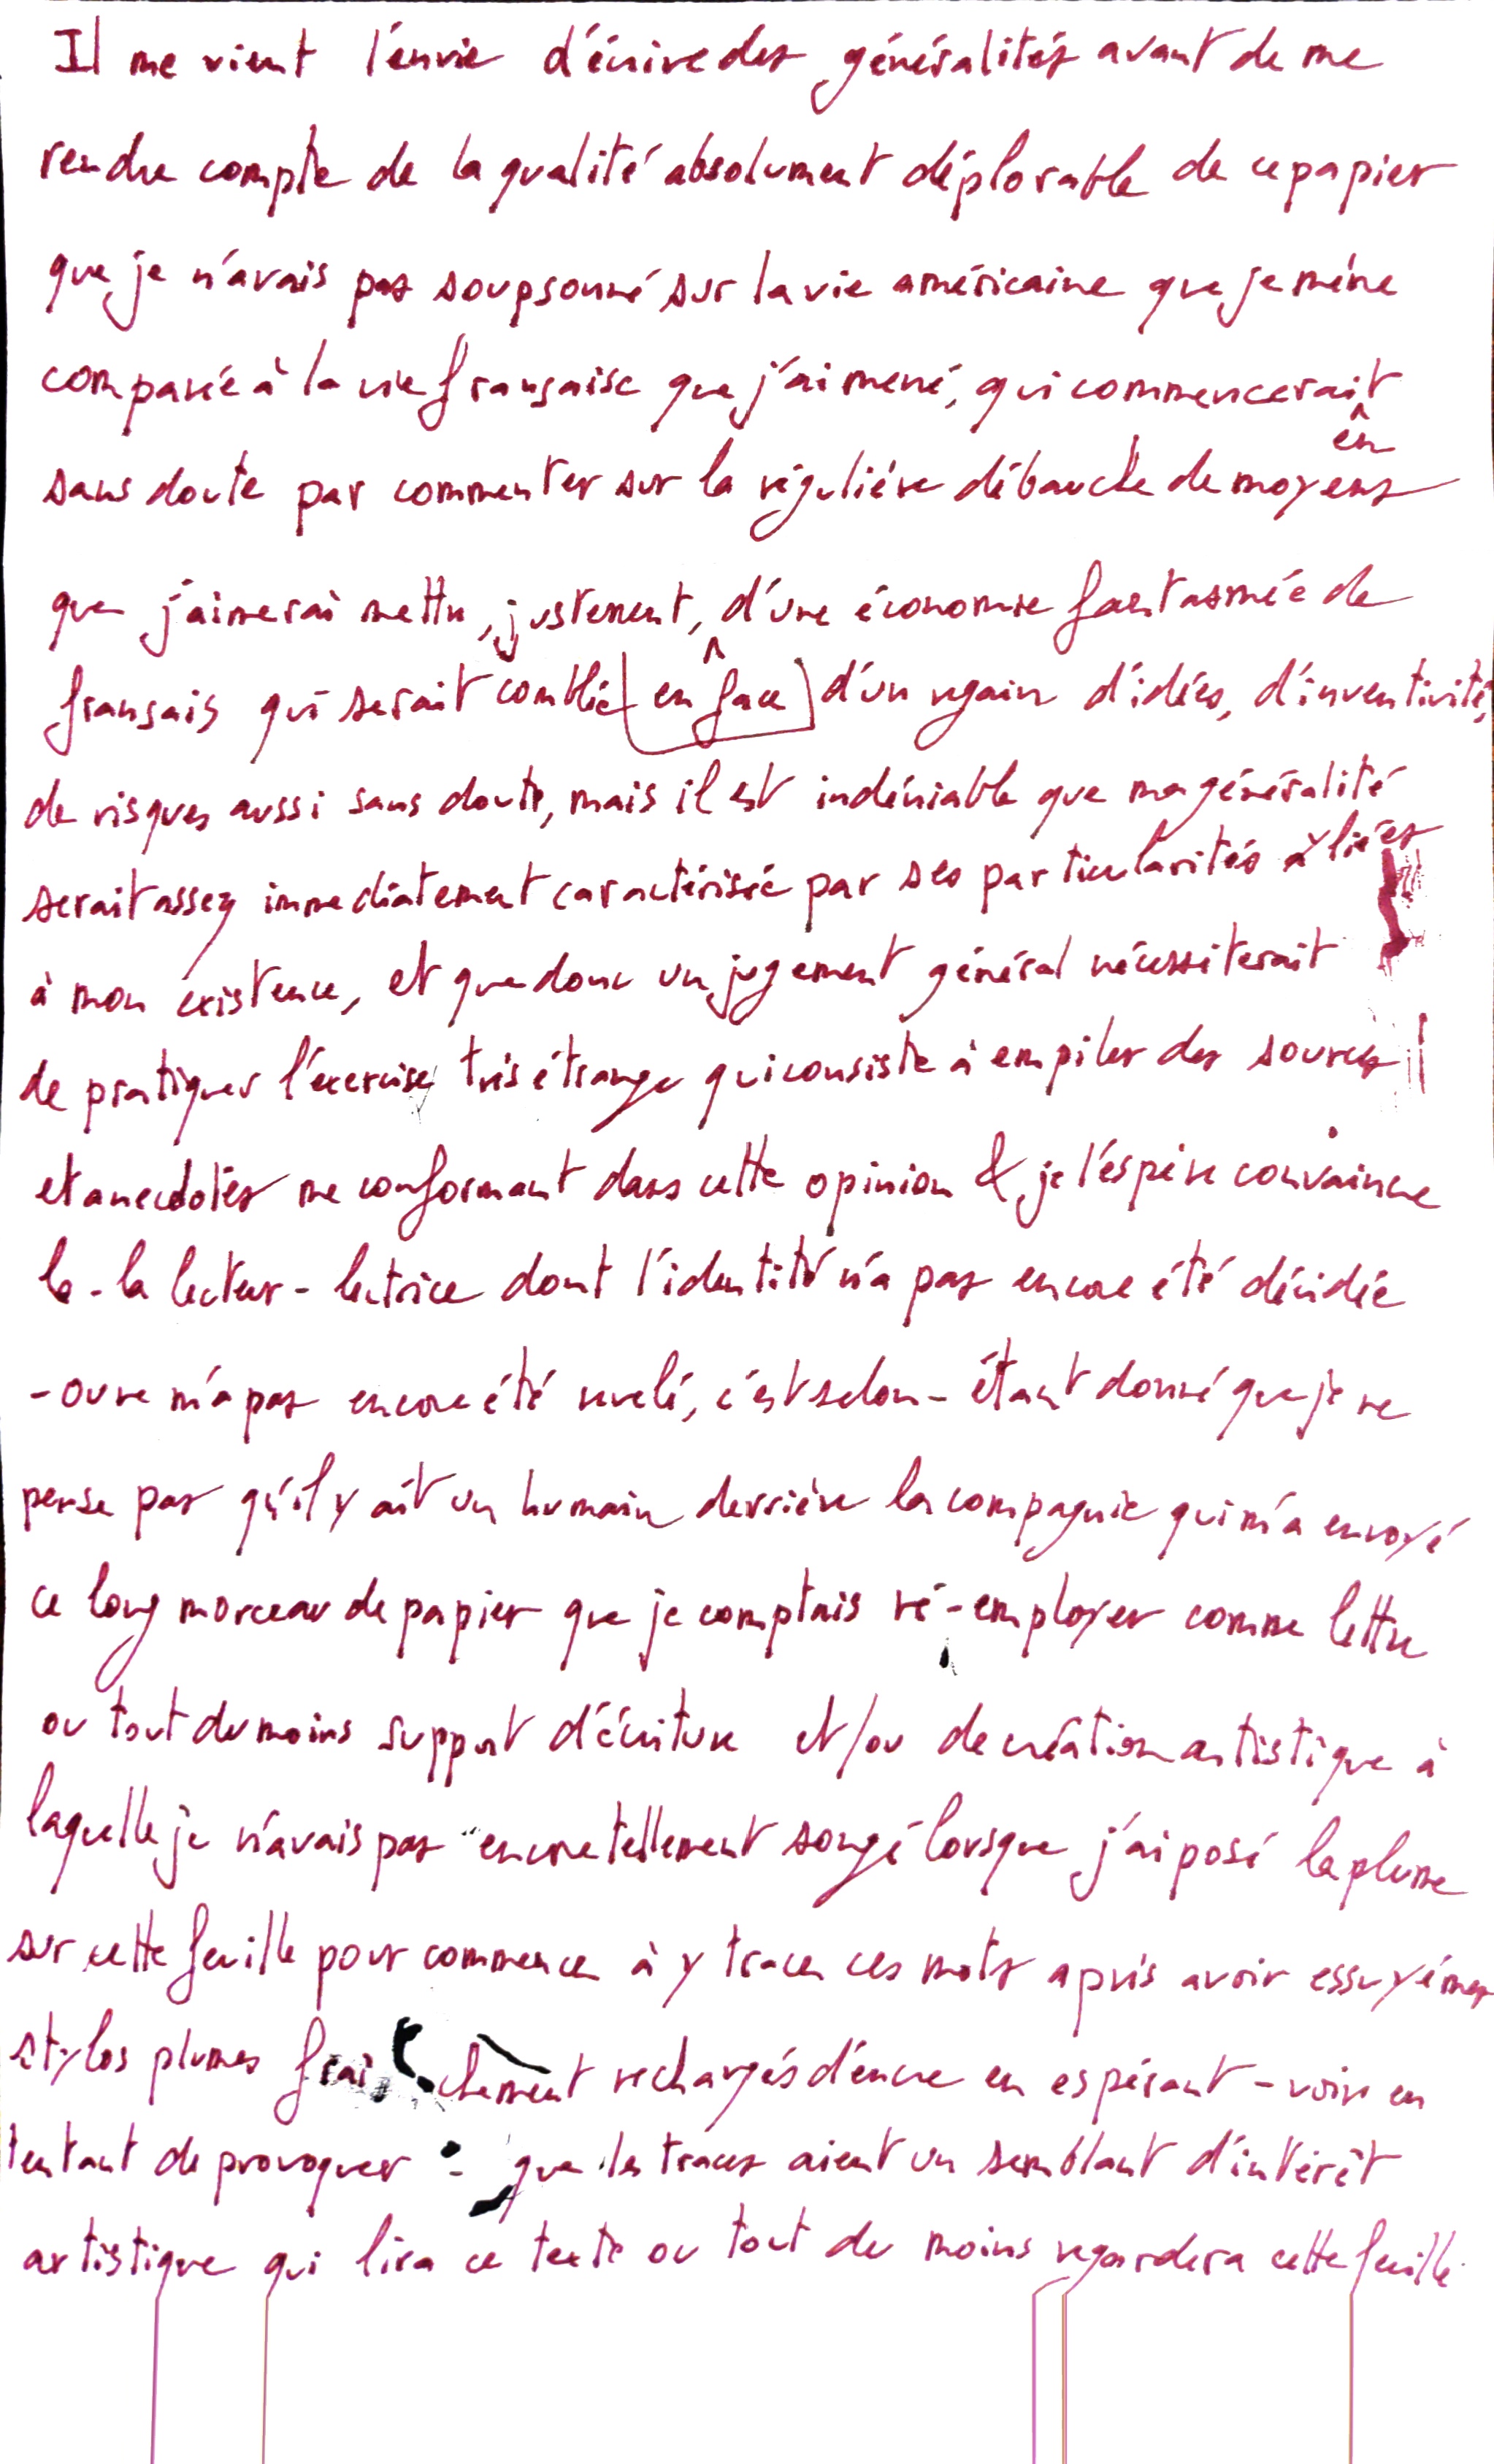 Il me vient l'envie d'écrire des généralités avant de me
rendre compte de la qualité absolument déplorable de ce papier
que je n'avais pas soupsonné sur la vie américaine que je mène
comparée à la vie française que j'ai mené, qui commencerait
en
sans doute par commenter sur la régulière débauche de moyens
que j'aimerai mettre, justement, d'une économie fantasmée de
français qui serait comblée en face d'un regain d'idées, d'inventivité,
de risques aussi sans doute, mais il est indéniable que ma généralité
serait assez immédiatement caractérisée par ses particularités liées
à mon existence, et que donc un jugement général nécessiterait
de pratiquer l'exercise très étrange qui consiste à empiler des sources
et anecdotes me conformant dans cette opinion & je l'éspère convaincre
le-la lecteur-lectrice dont l'identité n'a pas encore été décidée
- ou ne m'a pas encore été revelé, c'est selon - étant donné que je ne
pense pas qu'il y aît un humain derrière la compagnie qui m'a envoyé
ce long morceau de papier que je comptais ré-employer comme lettre
ou tout du moins support d'écriture et/ou de création artistique à
laquelle je n'avais pas encore tellement songé lorsque j'ai posé la plume
sur cette feuille pour commencer à y tracer ces mots après avoir essuyé mes
stylos plumes fraîchement rechargés d'encre en espérant - voire en
tentant de provoquer - que les traces aient un semblant d'intérêt
artistique qui lira ce texte ou tout du moins regardera cette feuille